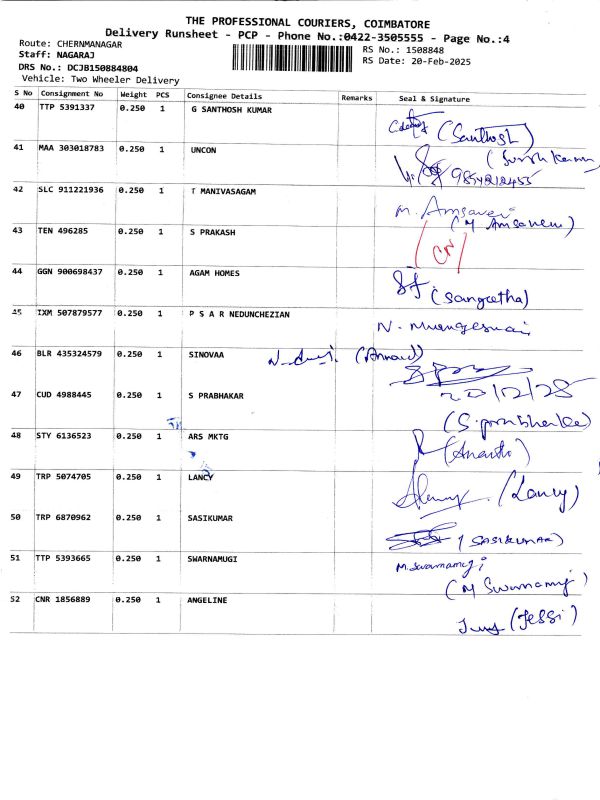 THE PROFESSIONAL COURIERS, COIMBATORE
Delivery Runsheet - PCP - Phone No.:0422-3505555 - Page No.:4
Route: CHERNMANAGAR
Staff: NAGARAJ
DRS No.: DCJB150884804
Vehicle: Two Wheeler Delivery
RS No.: 1508848
RS Date: 20-Feb-2025
S No Consignment No Weight PCS Consignee Details Remarks Seal & Signature
40 TTP 5391337 0.250 1 G SANTHOSH KUMAR (Santhosh)
41 MAA 303018783 0.250 1 UNCON
42 SLC 911221936 0.250 1 T MANIVASAGAM M. Amsaveni
(M Amsaveni)
43 TEN 496285 0.250 1 S PRAKASH
44 GGN 900698437 0.250 1 AGAM HOMES (Sangeetha)
45 IXM 507879577 0.250 1 P S A R NEDUNCHEZIAN
46 BLR 435324579 0.250 1 SINOVAA (Anand)
47 CUD 4988445 0.250 1 S PRABHAKAR
48 STY 6136523 0.250 1 ARS MKTG
49 TRP 5074705 0.250 1 LANCY (Lancy)
50 TRP 6870962 0.250 1 SASIKUMAR (SASIKUMAR)
51 TTP 5393665 0.250 1 SWARNAMUGI M. Swarnamugi
52 CNR 1856889 0.250 1 ANGELINE (Jessi)